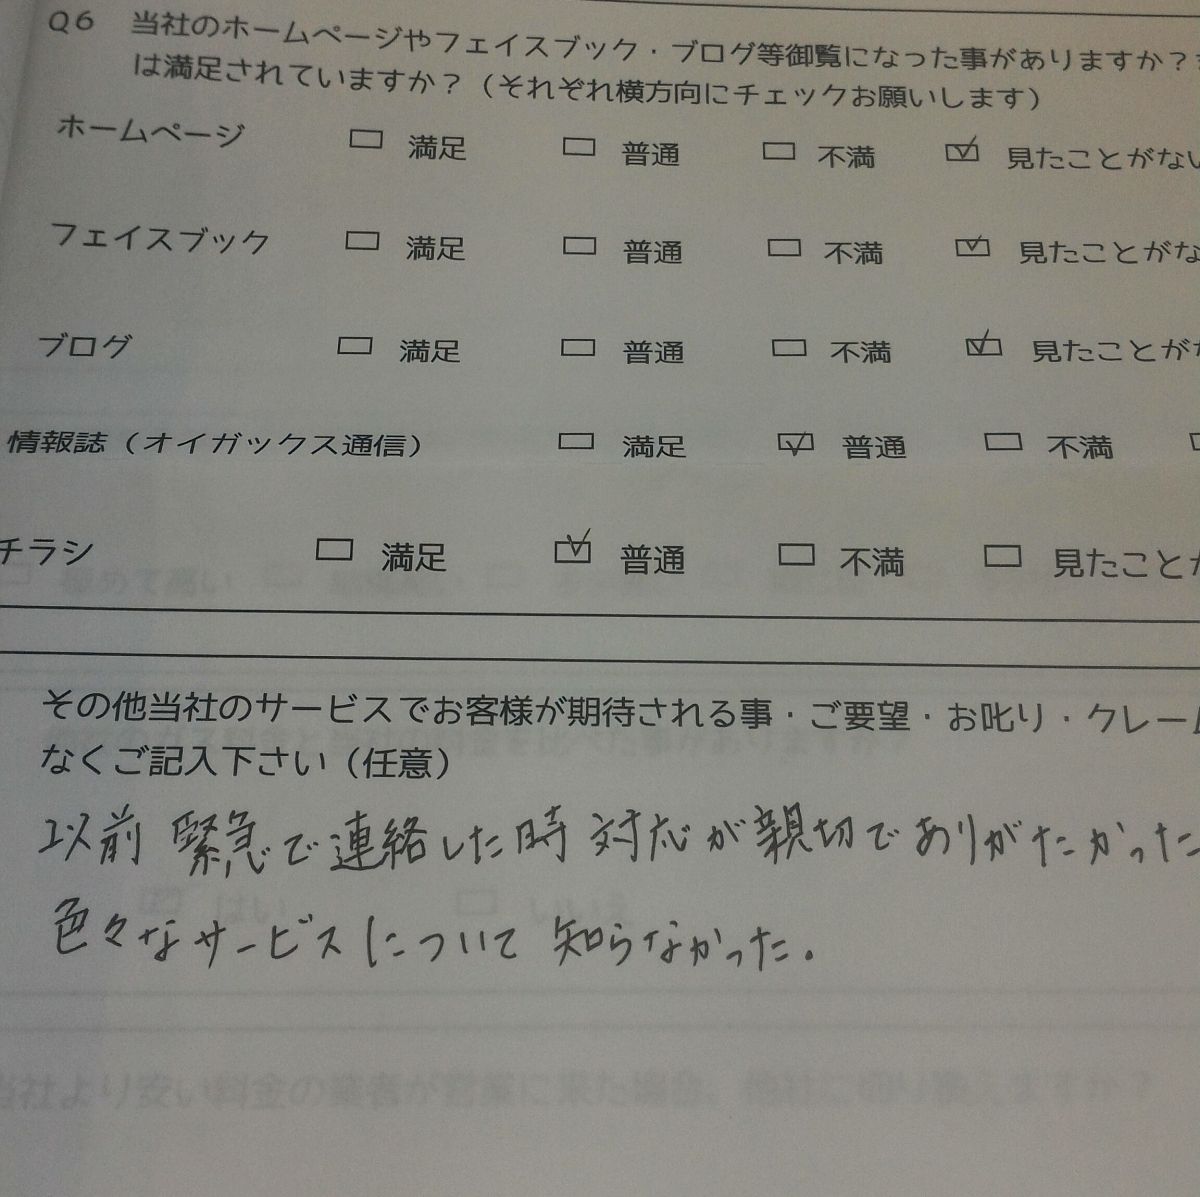 Q6 当社のホームページやフェイスブック・ブログ等御覧になった事がありますか？
は満足されていますか？（それぞれ横方向にチェックお願いします）
ホームページ □ 満足 □ 普通 □ 不満 ☑ 見たことがない
フェイスブック □ 満足 □ 普通 □ 不満 ☑ 見たことがな
ブログ □ 満足 □ 普通 □ 不満 ☑ 見たことが
情報誌（オイガックス通信） □ 満足 ☑ 普通 □ 不満 □
チラシ □ 満足 ☑ 普通 □ 不満 □ 見たことが
その他当社のサービスでお客様が期待される事・ご要望・お叱り・クレーム
なくご記入下さい（任意）
以前緊急で連絡した時対応が親切でありがたかった
色々なサービスについて知らなかった。
当社より安い料金の業者が営業に来た場合、他社に切り換えますか？